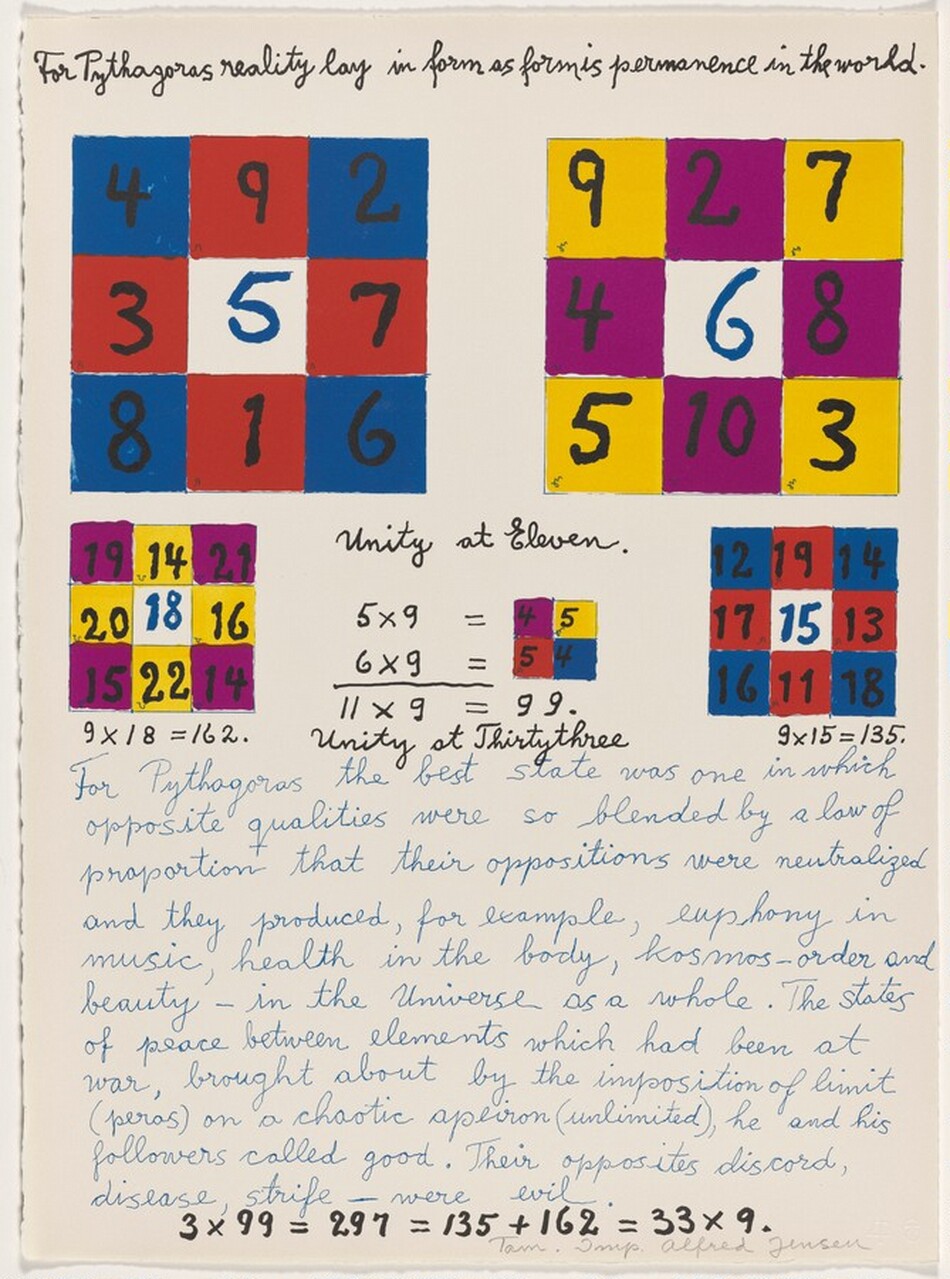 For Pythagoras reality lay in form as form is permanence in the world.
4 9 2
3 5 7
8 1 6
9 2 7
4 6 8
5 10 3
19 14 21
20 18 16
15 22 14
9 x 18 = 162.
Unity at Eleven.
5 x 9 = 4 5
6 x 9 = 5 4
11 x 9 = 99.
Unity at Thirtythree
12 19 14
17 15 13
16 11 18
9x15=135.
For Pythagoras the best state was one in which
opposite qualities were so blended by a law of
proportion that their oppositions were neutralized
and they produced, for example, euphony in
music, health in the body, kosmos-order and
beauty – in the Universe as a whole. The states
of peace between elements which had been at
war, brought about by the imposition of limit
(peras) on a chaotic apeiron (unlimited), he and his
followers called good. Their opposites discord,
disease, strife – were evil.
3 x 99 = 297 = 135 + 162 = 33 x 9.
Tam. Imp. Alfred Jensen